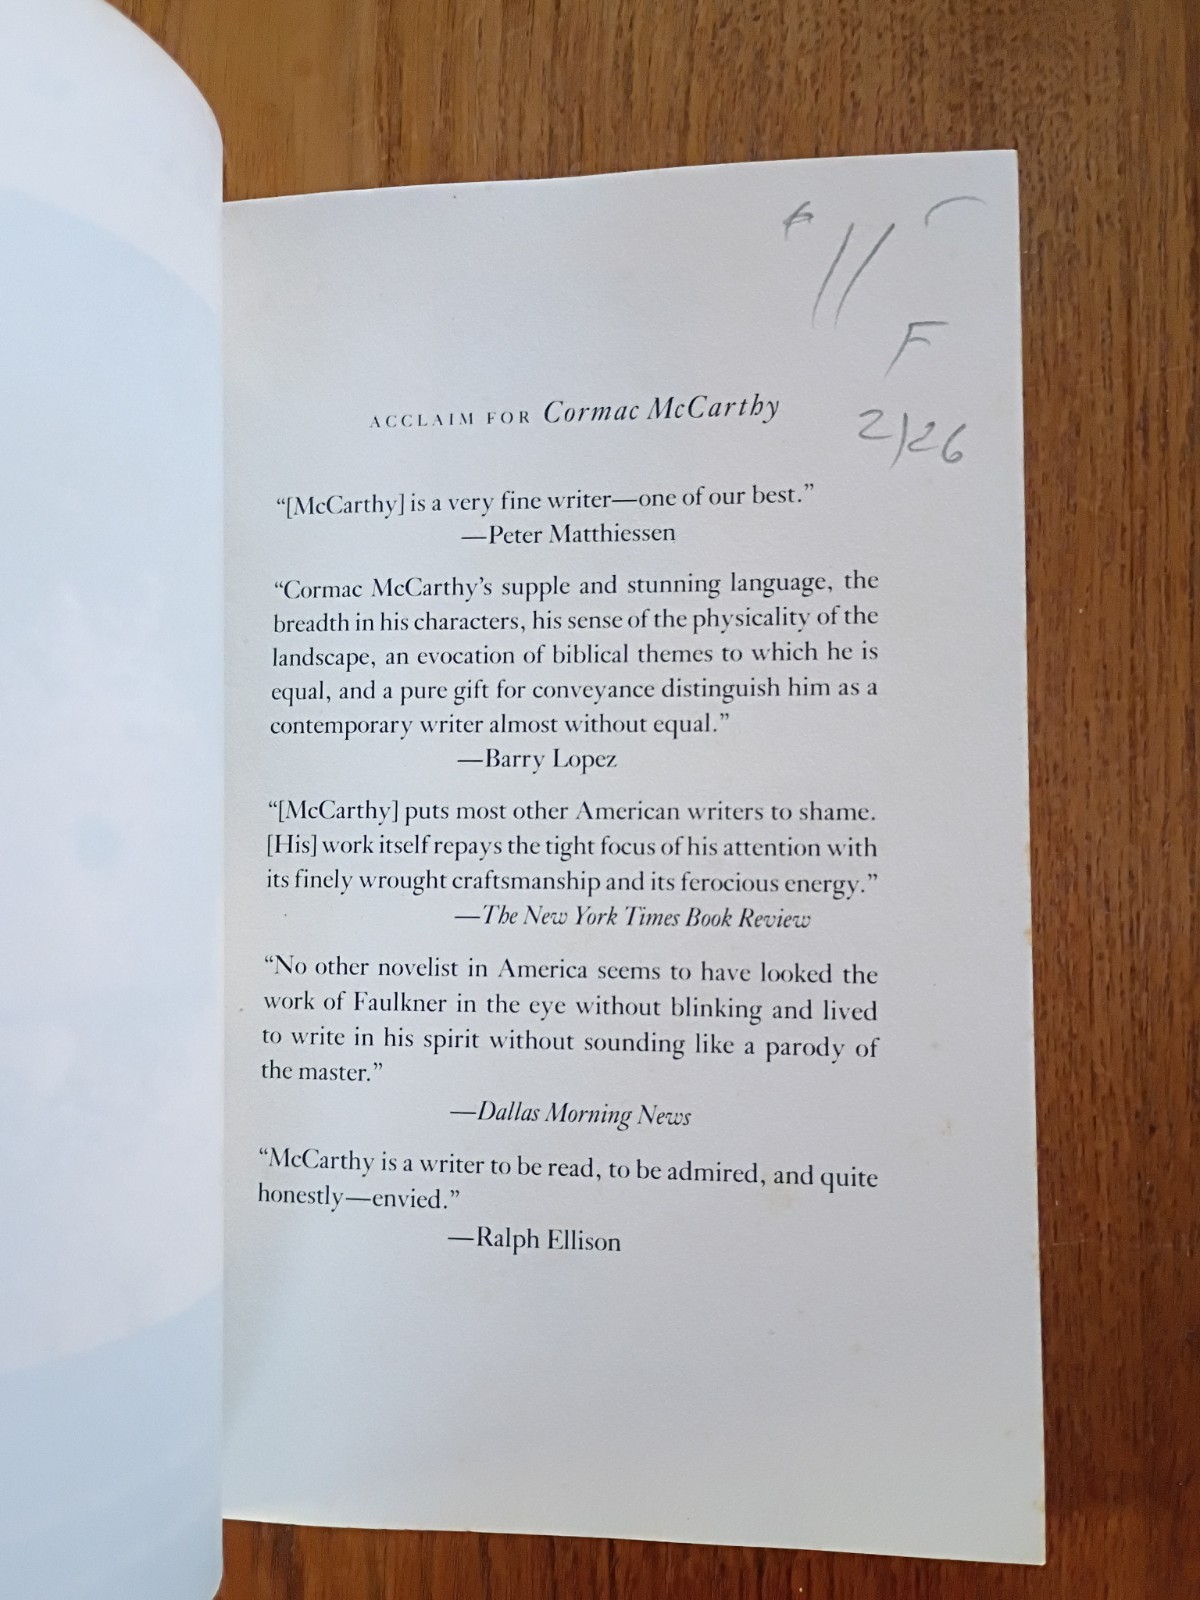 11
F
2/26
ACCLAIM FOR Cormac McCarthy
“[McCarthy] is a very fine writer—one of our best.”
—Peter Matthiessen
“Cormac McCarthy’s supple and stunning language, the
breadth in his characters, his sense of the physicality of the
landscape, an evocation of biblical themes to which he is
equal, and a pure gift for conveyance distinguish him as a
contemporary writer almost without equal.”
—Barry Lopez
“[McCarthy] puts most other American writers to shame.
[His] work itself repays the tight focus of his attention with
its finely wrought craftsmanship and its ferocious energy.”
—The New York Times Book Review
“No other novelist in America seems to have looked the
work of Faulkner in the eye without blinking and lived
to write in his spirit without sounding like a parody of
the master.”
—Dallas Morning News
“McCarthy is a writer to be read, to be admired, and quite
honestly—envied.”
—Ralph Ellison